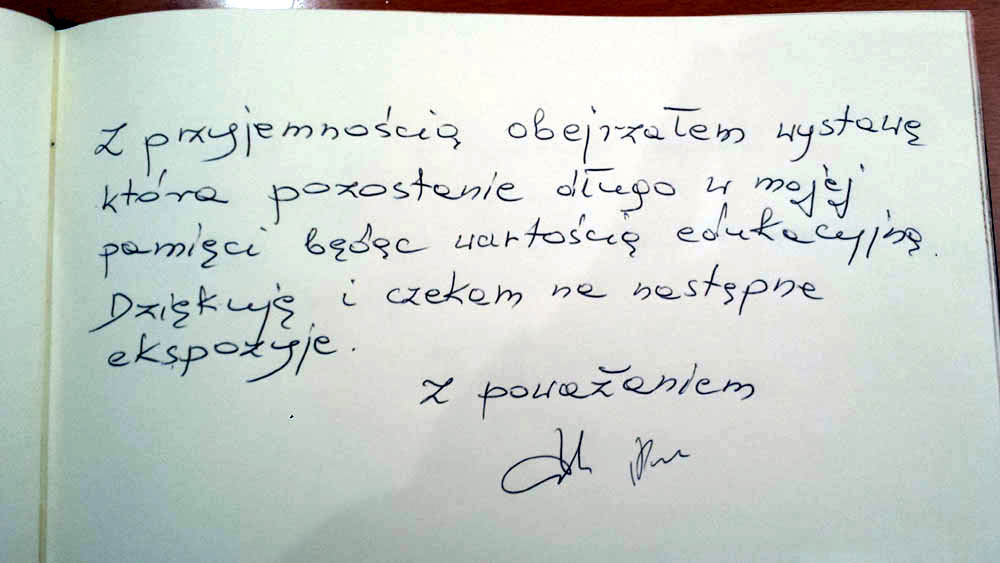 Z przyjemnością obejrzałem wystawę
która pozostanie długo w mojej
pamięci będąc wartością edukacyjną.
Dziękuję i czekam na następne
ekspozyje.
Z poważaniem